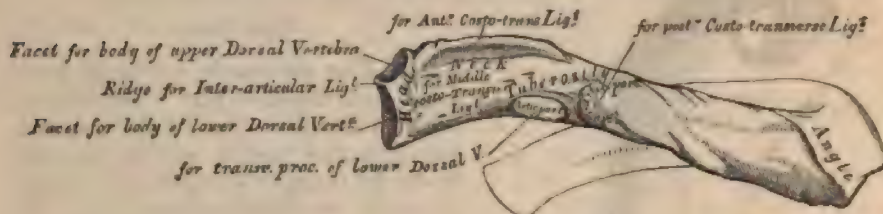 for Antr. Costo-trans Ligt.
for postr. Costo-transverse Ligt.
Facet for body of upper Dorsal Vertebra
Ridge for Inter-articular Ligt.
Facet for body of lower Dorsal Vertª.
for transv. proc. of lower Dorsal V.
Head
Neck
for Middle
Costo-Transe
Ligt.
Tuberosity
Artic. part
part
Angle